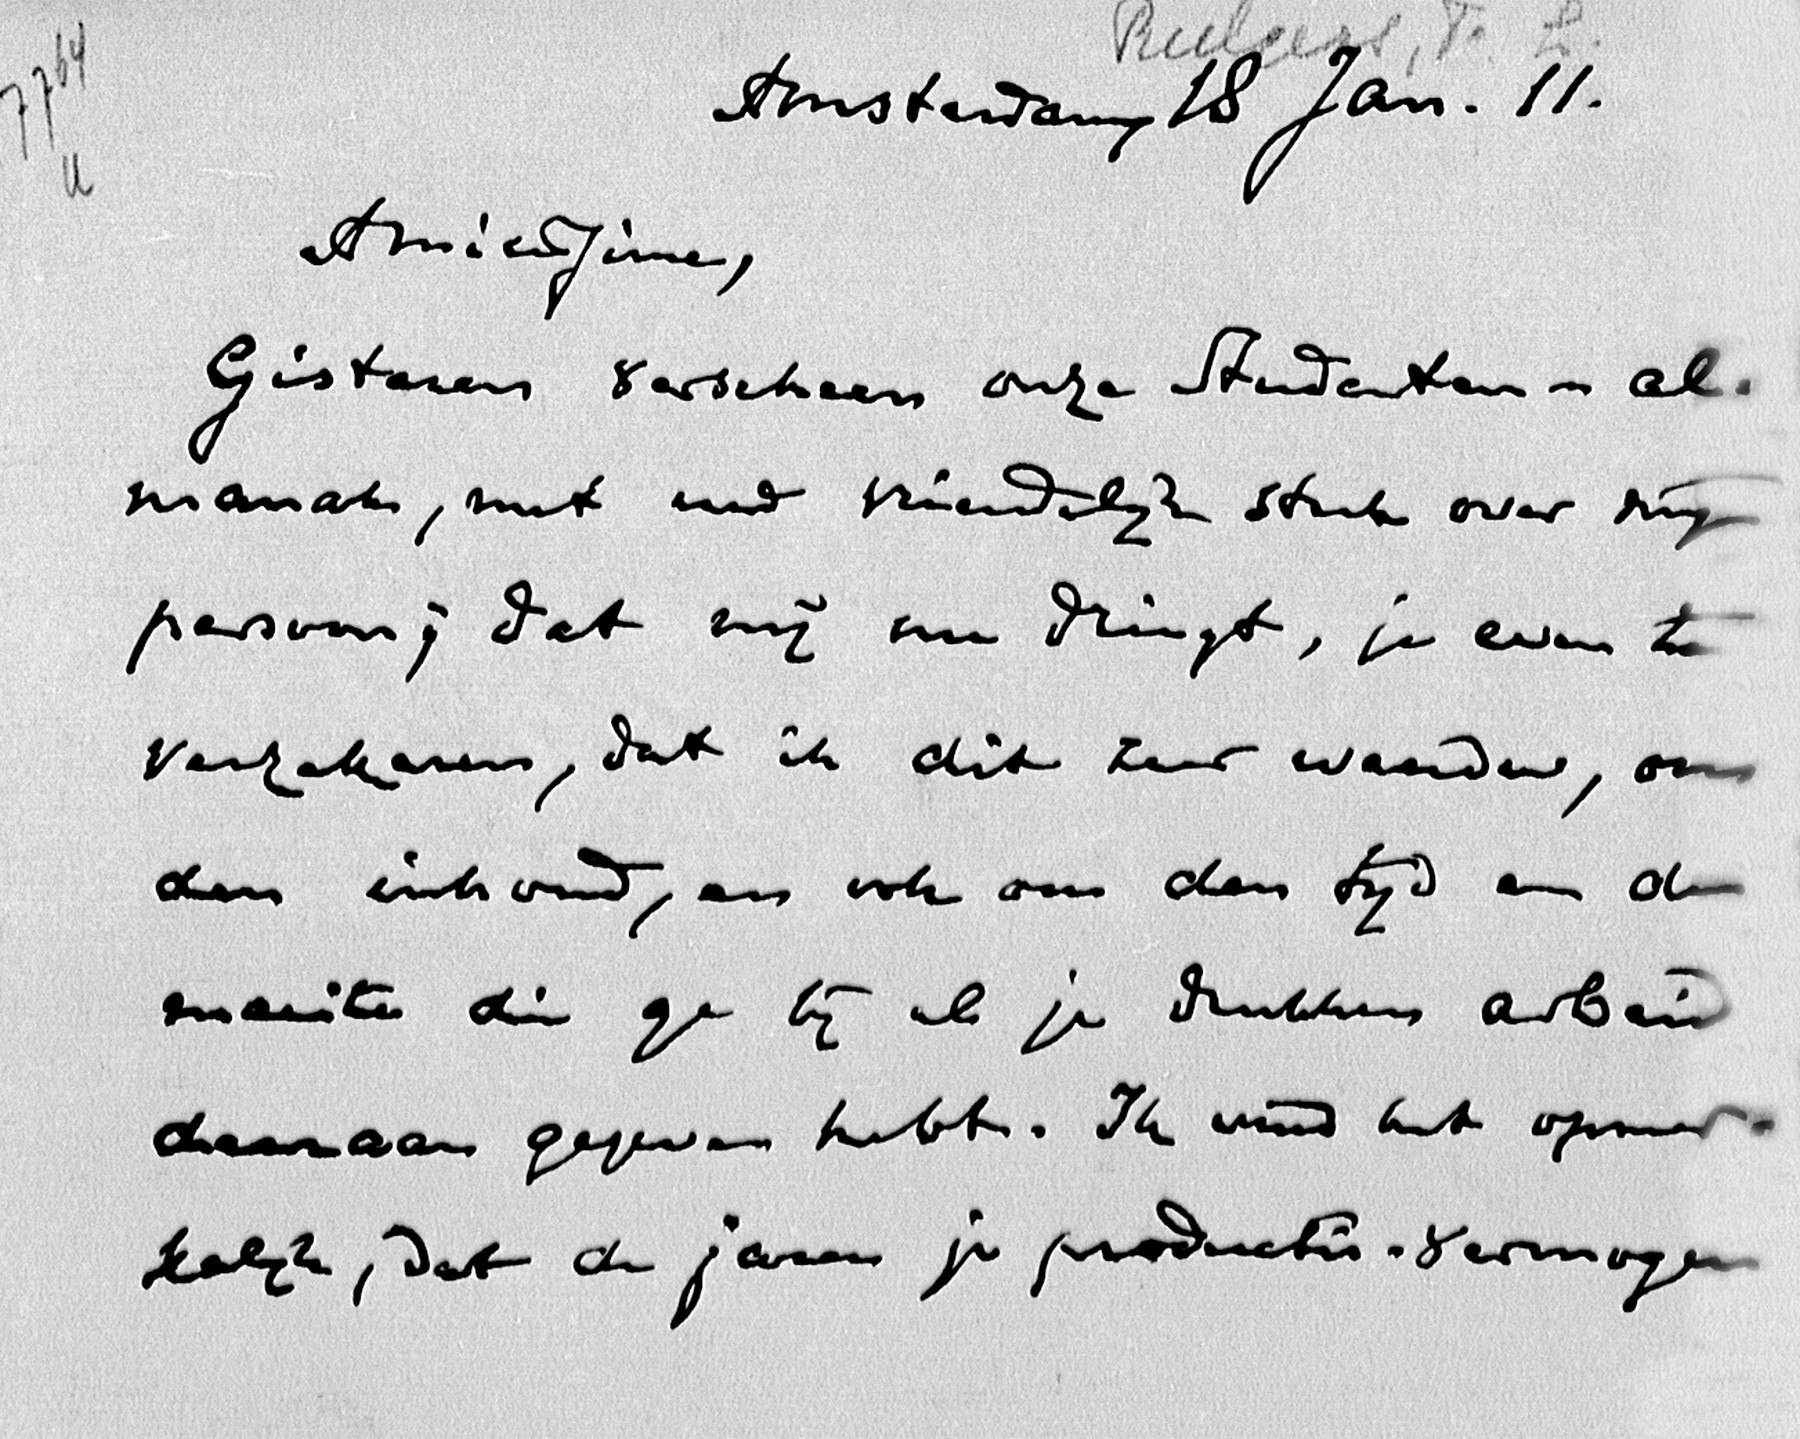 7764
u
Rutgers, F. L.
Amsterdam, 18 Jan. 11.
Amicissime,
Gisteren verscheen onze Studenten-al-
manak, met uw vriendelijk stuk over mijn
persoon; dat mij nu dringt, je even te
verzekeren, dat ik dit zeer waardeer, om
den inhoud, en ook om den tijd en de
moeite die ge bij al je drukken arbeid
daaraan gegeven hebt. Ik vind het opmer-
kelijk, dat de jaren je productie-vermogen